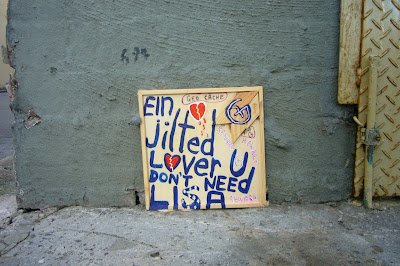 GEO CACHE
EIN
jilted
LOVER U
DON'T NEED
LISA